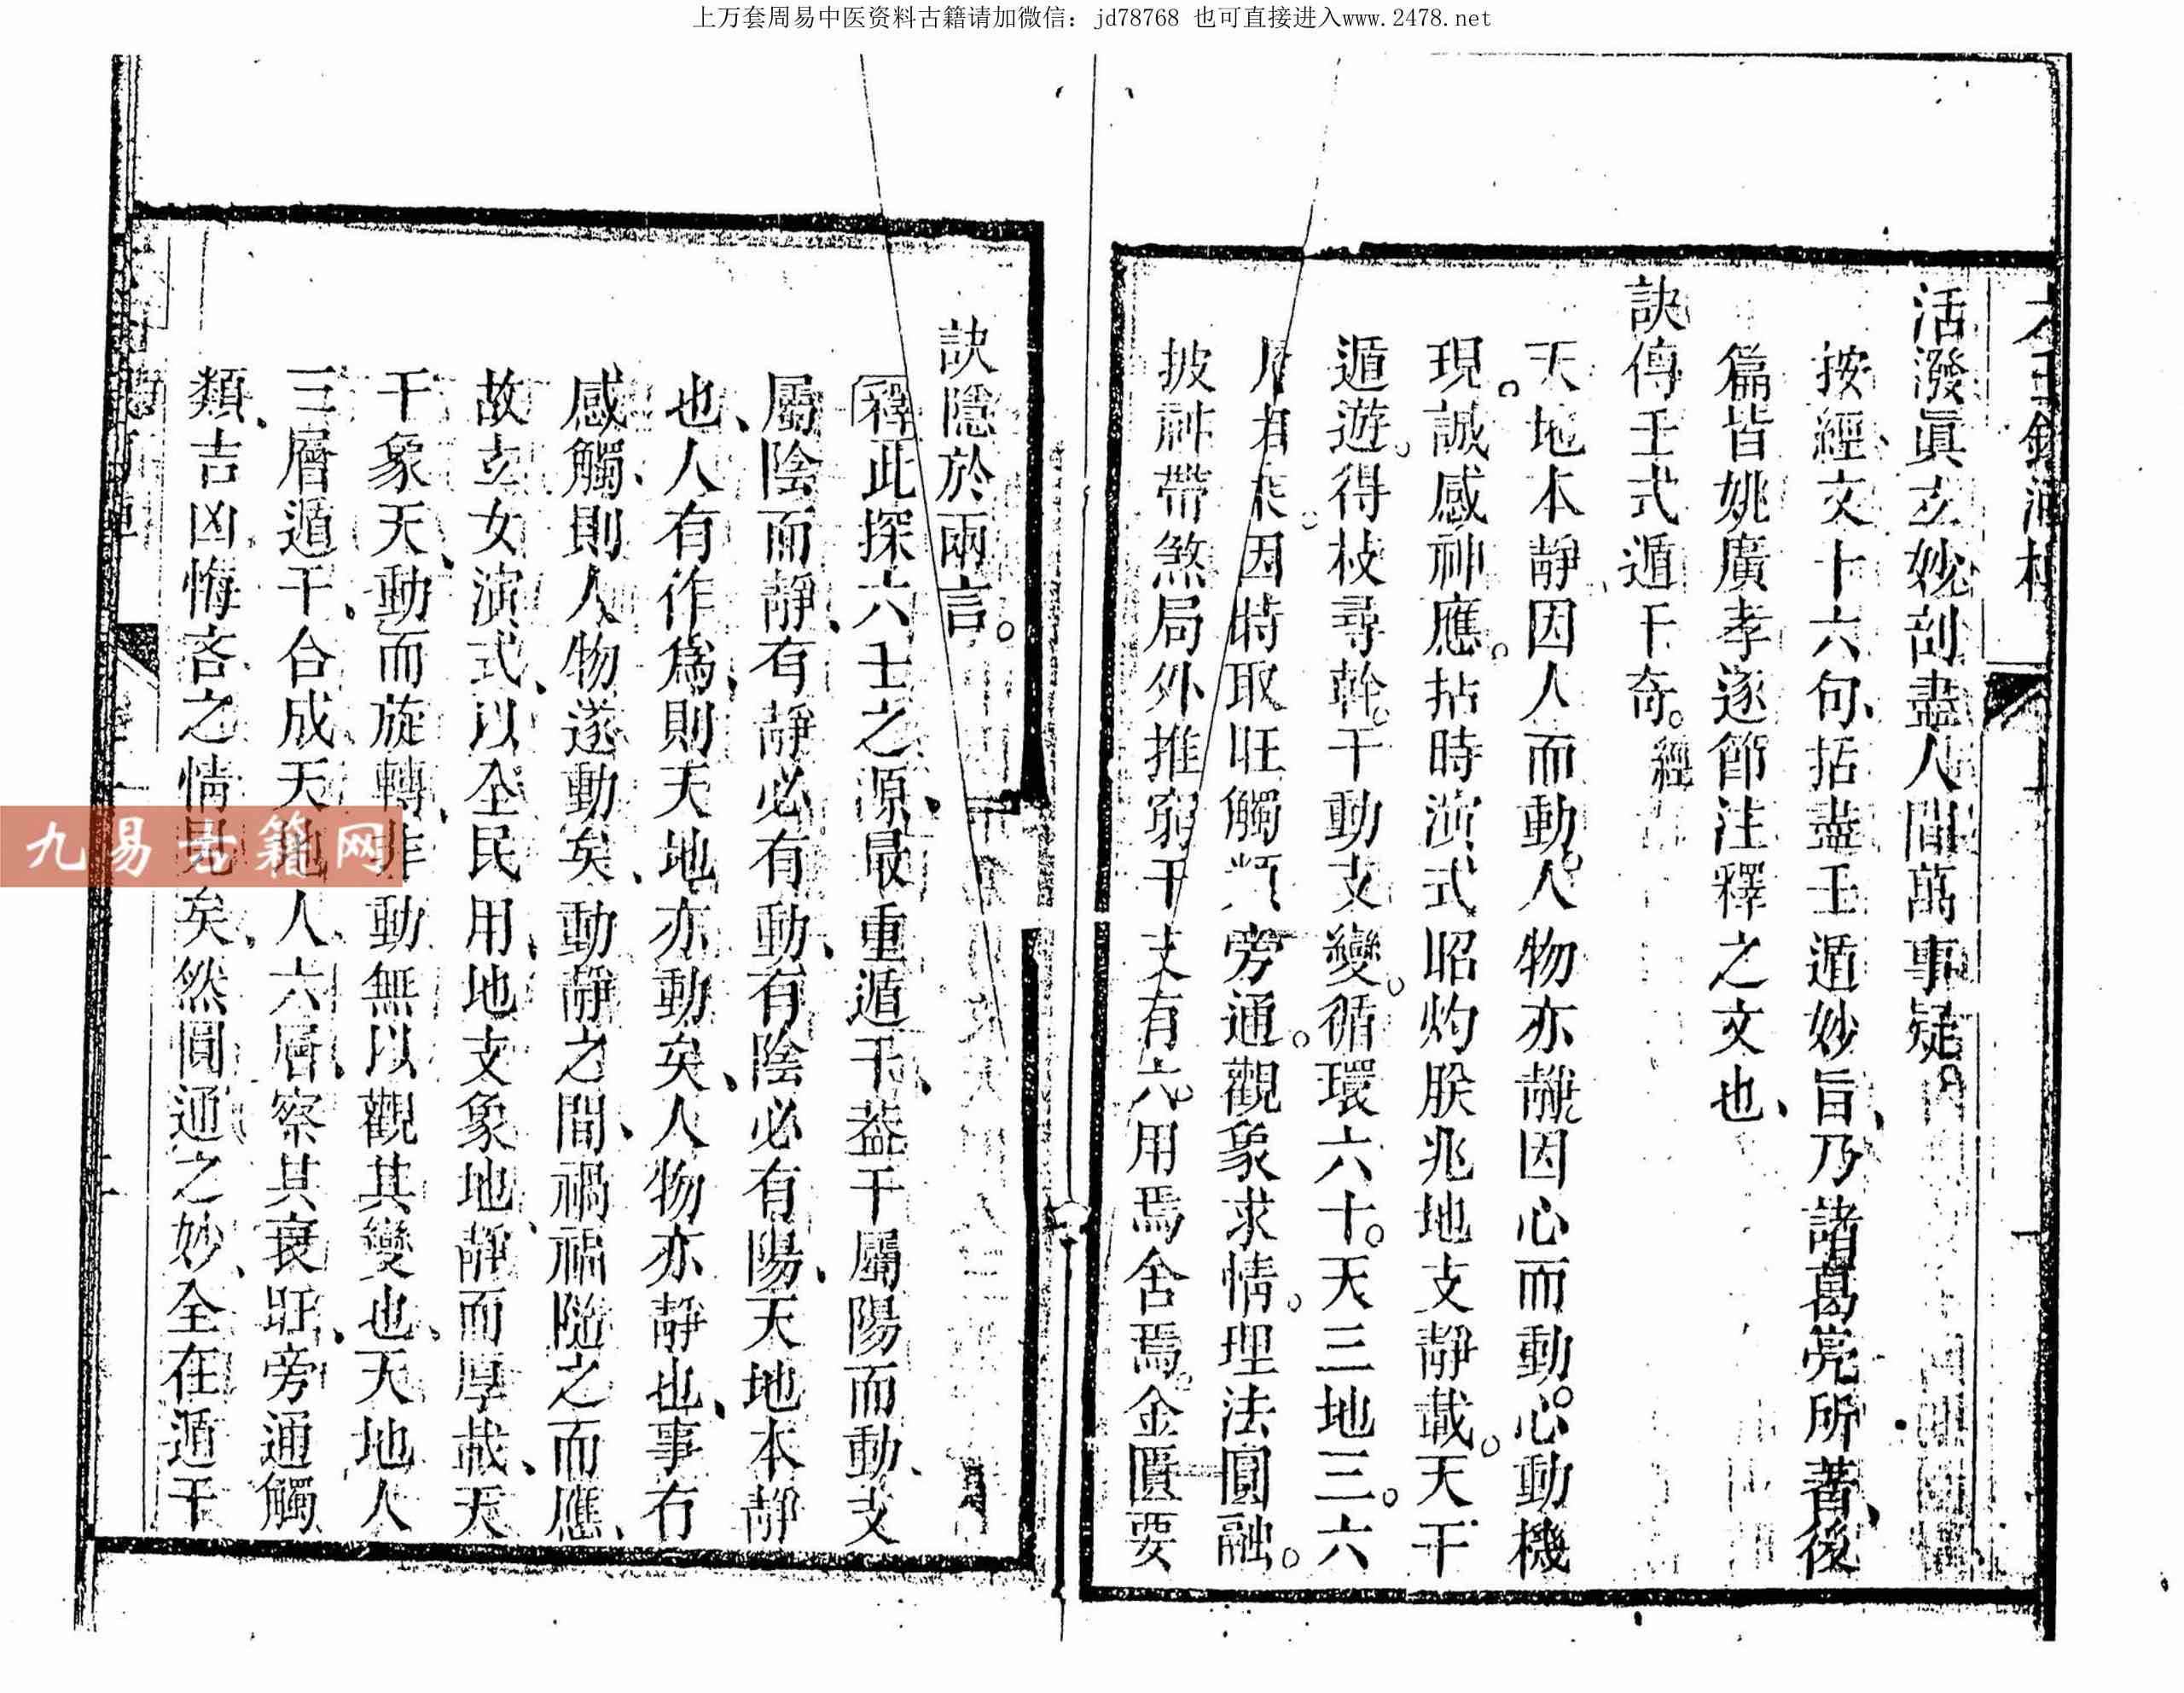 上万套周易中医资料古籍请加微信：jd78768 也可直接进入www.2478.net
活潑眞玄妙剖盡人間萬事疑。
按經文十六句、括盡壬遁妙旨、乃諸葛亮所著、後
篇皆姚廣孝逐節注釋之文也、
訣傳壬式遁干奇。經
天地本靜因人而動。人物亦靜因心而動。心動機
現。誠感神應。拈時演式昭灼朕兆地支靜載。天干
遁遊。得枝尋幹。干動支變。循環六十。天三地三。六
因時取旺觸類旁通。觀象求情。理法圓融。
披神帶煞局外推窮干支有六。用焉舍焉。金匱要
訣隱於兩言。
釋此探六壬之源、最重遁干、蓋干屬陽而動、支
屬陰而靜、有靜必有動、有陰必有陽、天地本靜
也、人有作爲、則天地亦動矣、人物亦靜也、事有
感觸、則人物遂動矣、動靜之間、禍福隨之而應、
故玄女演式、以全民用、地支象地、靜而厚載、天
干象天、動而旋轉、非動無以觀其變也、天地人
三層遁干、合成天地人、六層、察其衰旺、旁通觸
類、吉凶悔吝之情見矣、然圓通之妙、全在遁干
九易古籍网